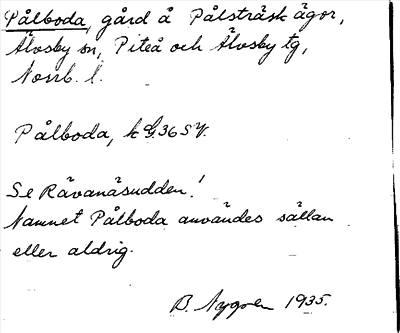 Pålboda, gård å Pålsträsk ägor,
Älvsby sn, Piteå och Älvsby tg,
Norrb. l.
Pålboda, k G36SV.
Se Rävanäsudden!
Namnet Pålboda användes sällan
eller aldrig.
B. Nygren 1935.